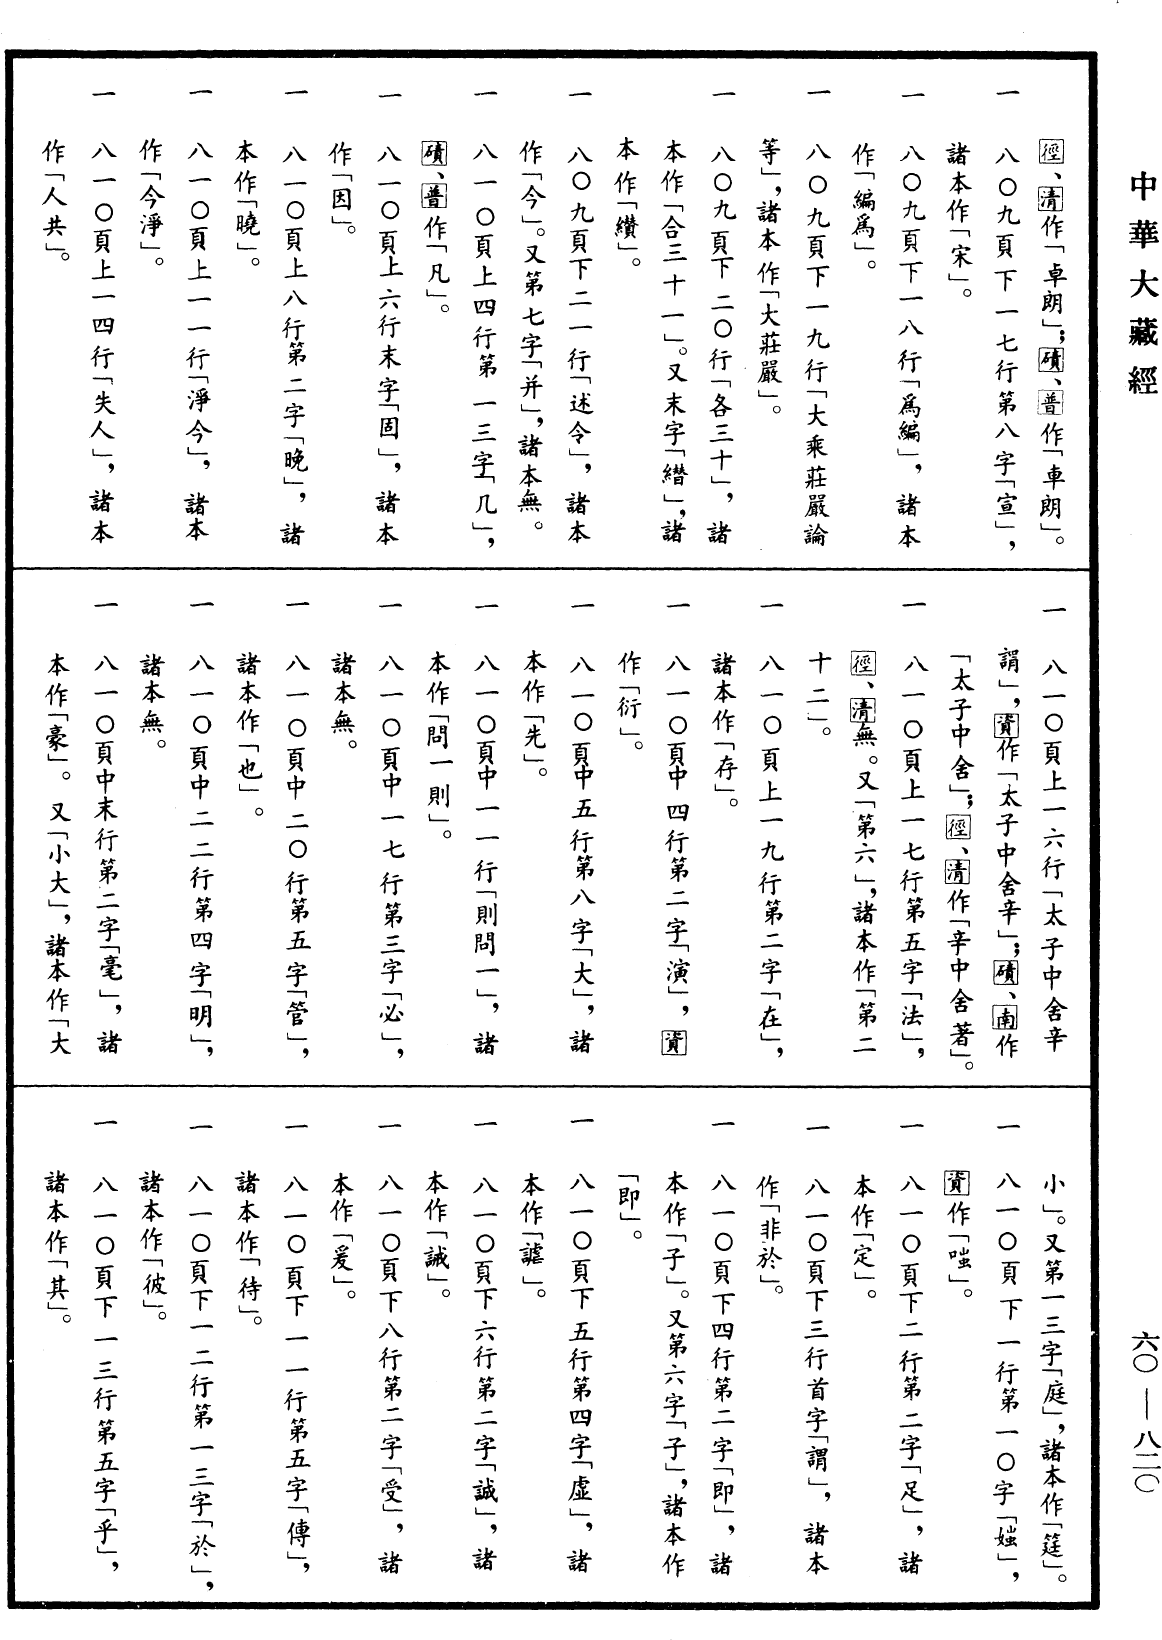 中華大藏經
徑、清作「卓朗」；磧、普作「車朗」。
一　八〇九頁下一七行第八字「宣」，
諸本作「宋」。
一　八〇九頁下一八行「爲編」，諸本
作「編爲」。
一　八〇九頁下一九行「大乘莊嚴論
等」，諸本作「大莊嚴」。
一　八〇九頁下二〇行「各三十」，諸
本作「合三十一」。又末字「𦆯」，諸
本作「纘」。
一　八〇九頁下二一行「述令」，諸本
作「今」。又第七字「并」，諸本無。
一　八一〇頁上四行第一三字「几」，
磧、普作「凡」。
一　八一〇頁上六行末字「固」，諸本
作「因」。
一　八一〇頁上八行第二字「晚」，諸
本作「曉」。
一　八一〇頁上一一行「淨今」，諸本
作「今淨」。
一　八一〇頁上一四行「失人」，諸本
作「人共」。
一　八一〇頁上一六行「太子中舍辛
謂」，資作「太子中舍辛」；磧、南作
「太子中舍」；徑、清作「辛中舍著」。
一　八一〇頁上一七行第五字「法」，
徑、清無。又「第六」，諸本作「第二
十二」。
一　八一〇頁上一九行第二字「在」，
諸本作「存」。
一　八一〇頁中四行第二字「演」，資
作「衍」。
一　八一〇頁中五行第八字「大」，諸
本作「先」。
一　八一〇頁中一一行「則問一」，諸
本作「問一則」。
一　八一〇頁中一七行第三字「必」，
諸本無。
一　八一〇頁中二〇行第五字「管」，
諸本作「也」。
一　八一〇頁中二二行第四字「明」，
諸本無。
一　八一〇頁中末行第二字「毫」，諸
本作「豪」。又「小大」，諸本作「大
小」。又第一三字「庭」，諸本作「筳」。
一　八一〇頁下一行第一〇字「媸」，
資作「嗤」。
一　八一〇頁下二行第二字「足」，諸
本作「定」。
一　八一〇頁下三行首字「謂」，諸本
作「非於」。
一　八一〇頁下四行第二字「即」，諸
本作「子」。又第六字「子」，諸本作
「即」。
一　八一〇頁下五行第四字「虛」，諸
本作「謔」。
一　八一〇頁下六行第二字「誠」，諸
本作「誡」。
一　八一〇頁下八行第二字「受」，諸
本作「爰」。
一　八一〇頁下一一行第五字「傳」，
諸本作「待」。
一　八一〇頁下一二行第一三字「於」，
諸本作「彼」。
一　八一〇頁下一三行第五字「乎」，
諸本作「其」。
六〇—八二〇